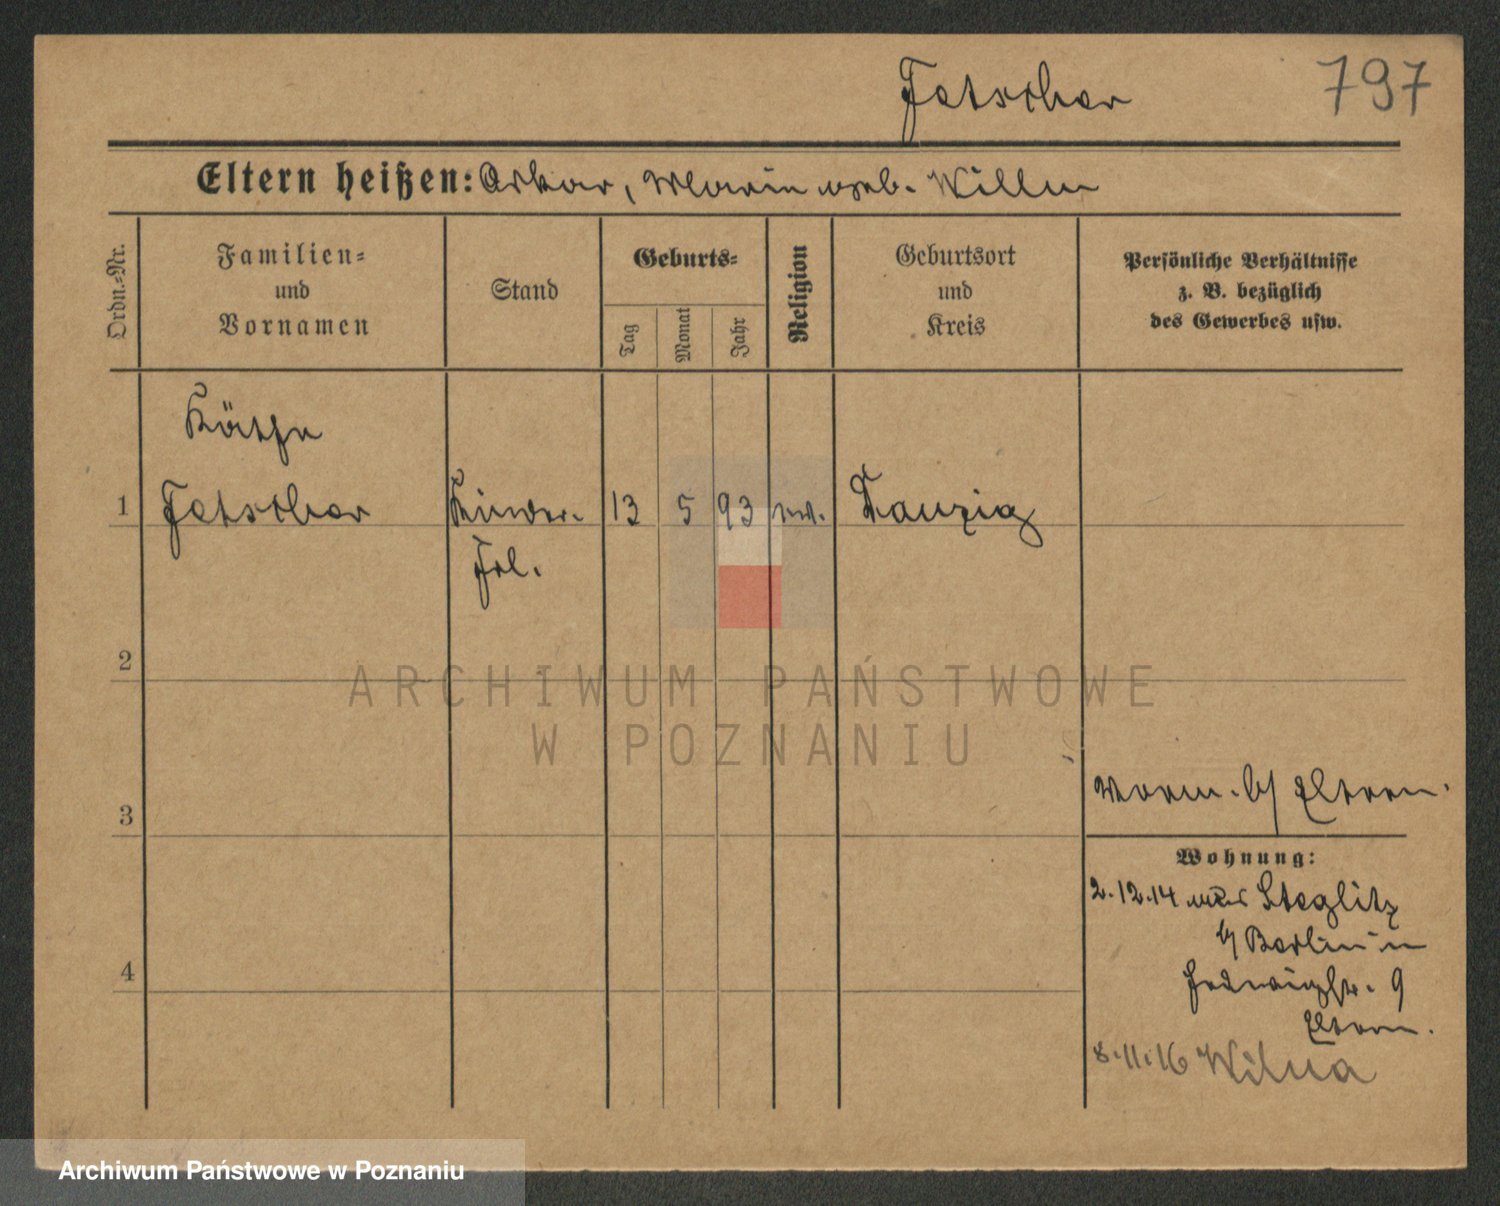 Fetscher 797
Eltern heißen: Oskar, Marie geb. Wille
Ordn.-Nr.
Familien-
und
Vornamen
Stand
Geburts-
Tag
Monat
Jahr
Religion
Geburtsort
und
Kreis
Persönliche Verhältnisse
z. B. bezüglich
des Gewerbes usw.
Käthe
1 Fetscher Kinder- 13 5 93 ev. Danzig
Frl.
2
ARCHIWUM PAŃSTWOWE
W POZNANIU
3
b/ Eltern.
Wohnung:
2.12.14 Steglitz
b/ Berlin in
Hedwigstr. 9
Eltern.
8.11.16 Wilna
4
Archiwum Państwowe w Poznaniu